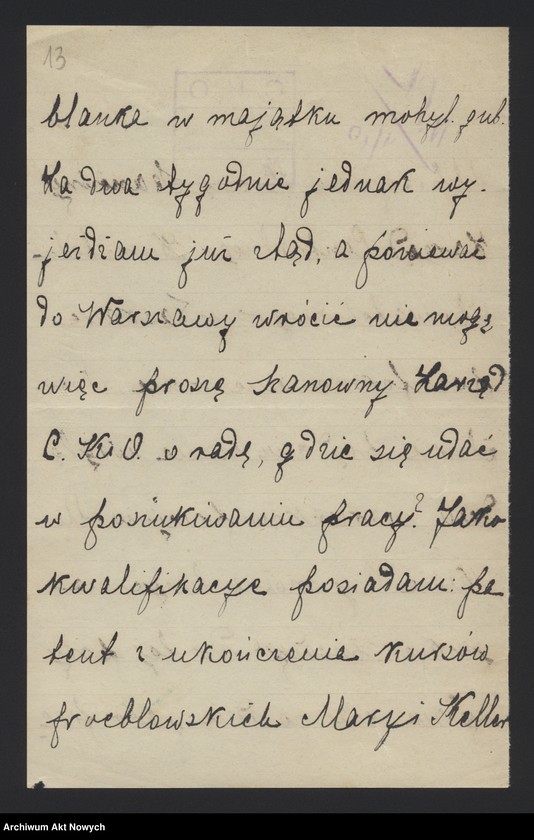 13
blanka w majątku mohyl. gub.
Za dwa tygodnie jednak wy-
jeżdżam już stąd, a ponieważ
do Warszawy wrócić nie mogę
więc proszę szanowny Zarząd
C. K. O. o radę, gdzie się udać
w poszukiwaniu pracy? Jako
kwalifikacye posiadam: pa
tent z ukończenia kursów
froeblowskich Maryi Keller
Archiwum Akt Nowych